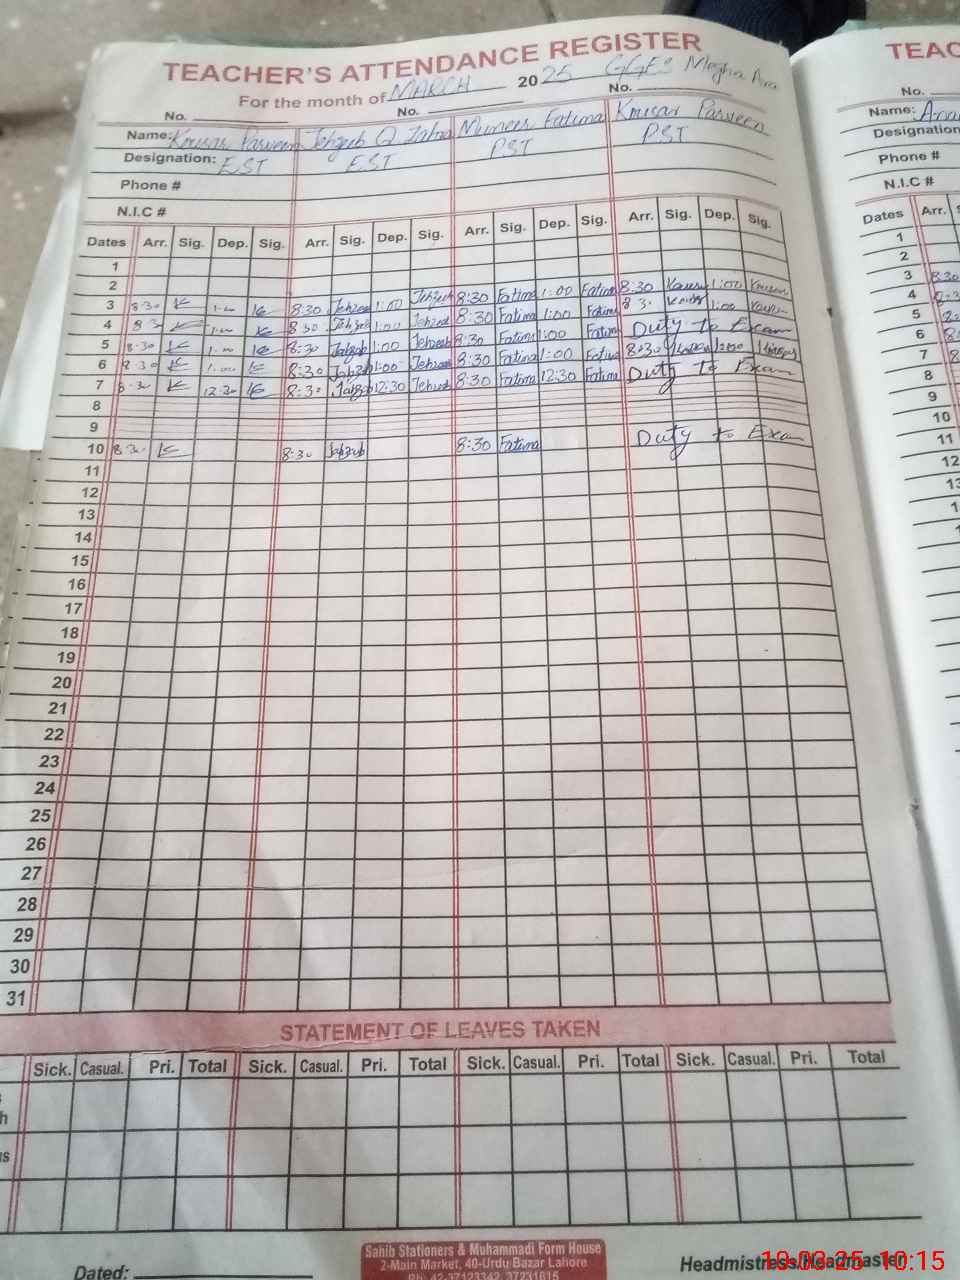 TEACHER'S ATTENDANCE REGISTER
For the month of MARCH 2025 GGES Megha Ara
No. No. No.
Name: Kousar Parveen Jehzeeb Q Zahra Muneer Fatima Kousar Parveen
Designation: EST EST PST PST
Phone #
N.I.C #
Dates Arr. Sig. Dep. Sig. Arr. Sig. Dep. Sig. Arr. Sig. Dep. Sig. Arr. Sig. Dep. Sig.
1
2
3 8:30 1:00 8:30 Jehzeeb 1:00 Jehzeeb 8:30 Fatima 1:00 Fatima 8:30 Kausar 1:00 Kausar
4 8:30 1:00 8:30 Jehzeeb 1:00 Jehzeeb 8:30 Fatima 1:00 Fatima 8:30 Kausar 1:00 Kausar
5 8:30 1:00 8:30 Jehzeeb 1:00 Jehzeeb 8:30 Fatima 1:00 Fatima Duty to Exam
6 8:30 1:00 8:30 Jehzeeb 1:00 Jehzeeb 8:30 Fatima 1:00 Fatima 8:30
7 8:30 12:30 8:30 Jehzeeb 12:30 Jehzeeb 8:30 Fatima 12:30 Fatima Duty to Exam
8
9
10 8:30 8:30 Jehzeeb 8:30 Fatima Duty to Exam
11
12
13
14
15
16
17
18
19
20
21
22
23
24
25
26
27
28
29
30
31
STATEMENT OF LEAVES TAKEN
Sick. Casual. Pri. Total Sick. Casual. Pri. Total Sick. Casual. Pri. Total Sick. Casual. Pri. Total
Sahib Stationers & Muhammadi Form House
2-Main Market, 40-Urdu Bazar Lahore
Ph: 42-37123342, 37231615
Dated: Headmistress/Headmaster
10-03-25 10:15
TEAC
No.
Name:
Designation
Phone #
N.I.C #
Dates Arr.
1
2
3 8:30
4
5
6
7
8
9
10
11
12
13